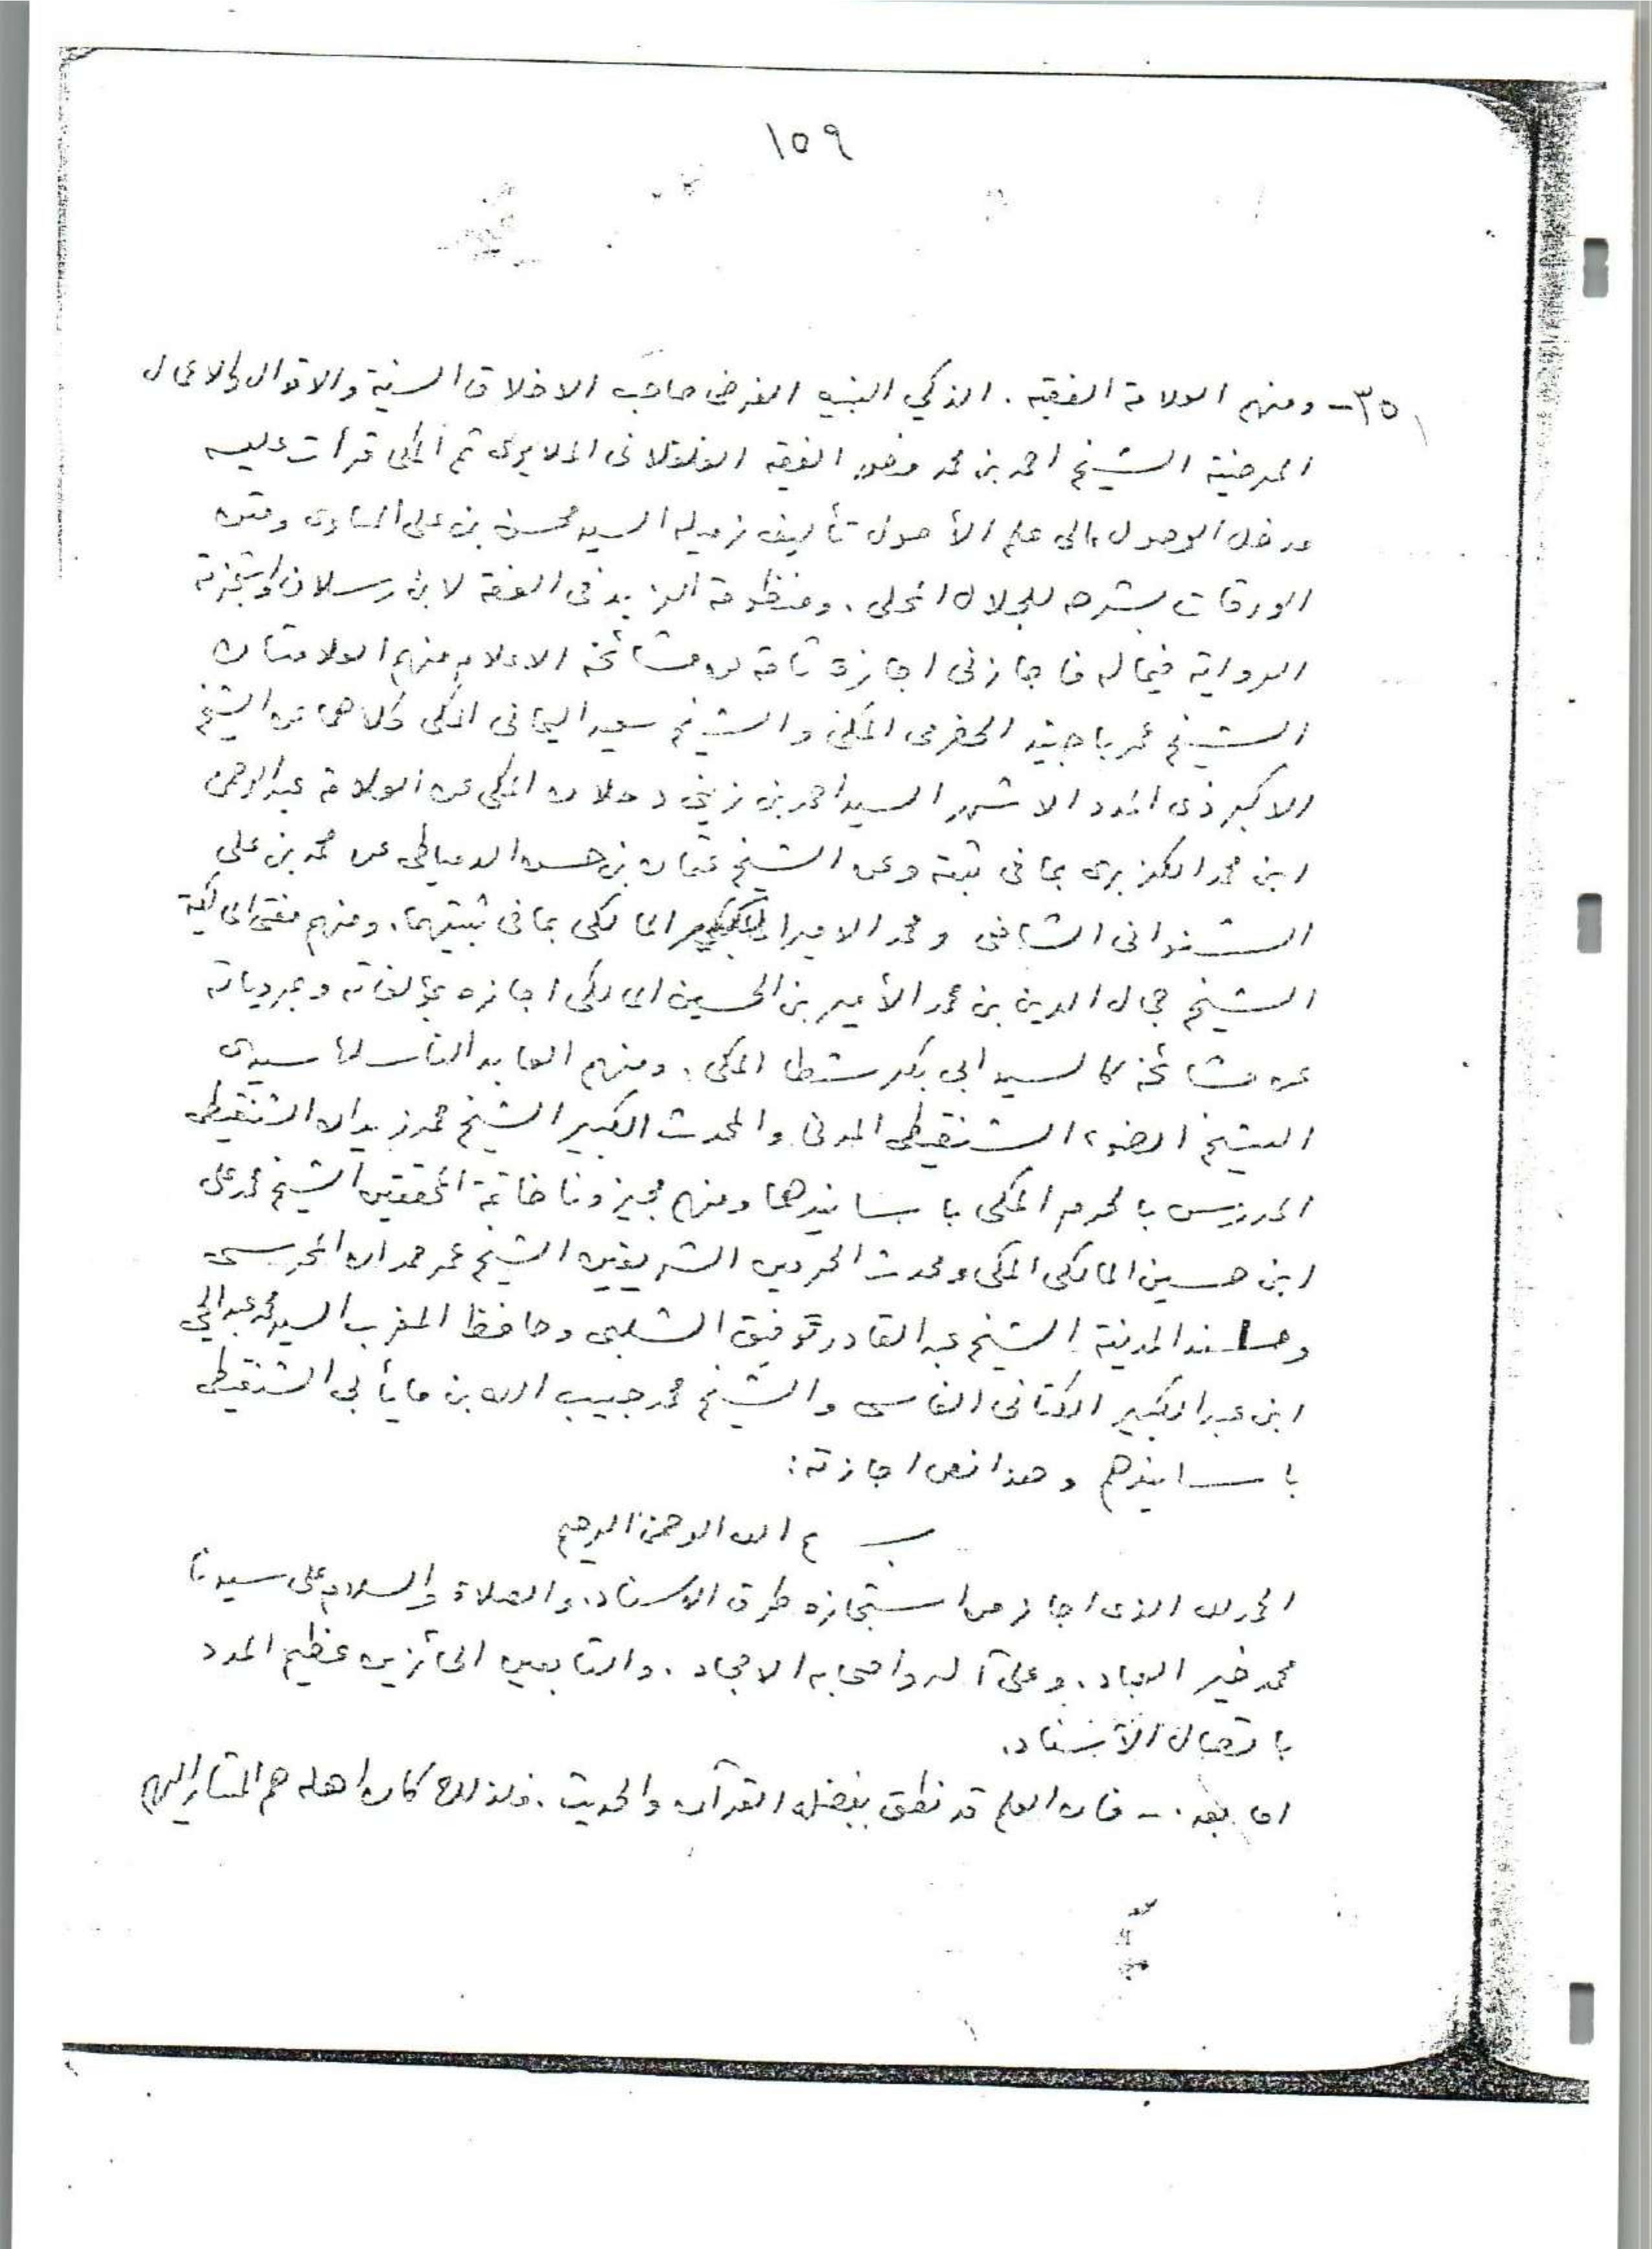 ١٥٩
٣٥- ومنهم العلامة الفقيه. الذكي النبيه الفرضى صاحب الاخلاق السنية والاقوال والاعمال
المرضية الشيخ احمد بن محمد منصور الفقيه الفلفلانى الملايوى ثم المكى قرأت عليه
مدخل الوصول الى علم الأصول تأليف زميله السيد محسن بن على المساوى ومتن
الورقات بشرحه للجلال المحلى. ومنظومة الزبد فى الفقه لابن رسلان واستجزته
الرواية فيما له فاجازنى اجازة تامة عن مشائخه الاعلام منهم العلامتان
الشيخ عمر باجنيد الحضرمى المكى والشيخ سعيد اليمانى المكى كلاهما عن الشيخ
الاكبر ذى المدد الاشهر السيد احمد بن زينى دحلان المكى عن العلامة عبد الرحمن
ابن محمد الكزبرى بما فى ثبته وعن الشيخ عثمان بن حسن الدمياطى عن محمد بن على
الشنوانى الشافعى ومحمد الامير الكبير المالكى بما فى ثبتيهما. ومنهم مفتى المالكية
الشيخ جمال الدين بن محمد الأمير بن الحسين المالكى اجازه بمؤلفاته وبمروياته
عن مشائخه كالسيد ابى بكر شطا المكى. ومنهم العابد الناسك سيدى
الشيخ الخضر الشنقيطى المدنى والمحدث الكبير الشيخ محمد زيدان الشنقيطى
المدرس بالحرم المكى باسانيدهما ومنهم مجيزونا خاتمة المحققين الشيخ محمد على
ابن حسين المالكى المكى ومحدث الحرمين الشريفين الشيخ عمر حمدان المحرسى
ومسند المدينة الشيخ عبد القادر توفيق الشلبى وحافظ المغرب السيد محمد عبد الحي
ابن عبد الكبير الكتانى الفاسى والشيخ محمد حبيب الله بن مايأبى الشنقيطى
باسانيدهم وهذا نص اجازته:
بسم الله الرحمن الرحيم
الحمد لله الذى اجاز من استجازه طرق الاسناد. والصلاة والسلام على سيدنا
محمد خير العباد. وعلى آله واصحابه الامجاد. والتابعين الحائزين عظيم المدد
باتصال الاسناد.
اما بعد. - فان العلم قد نطق بفضله القرآن والحديث. فلذلك كان اهله هم المشار اليهم